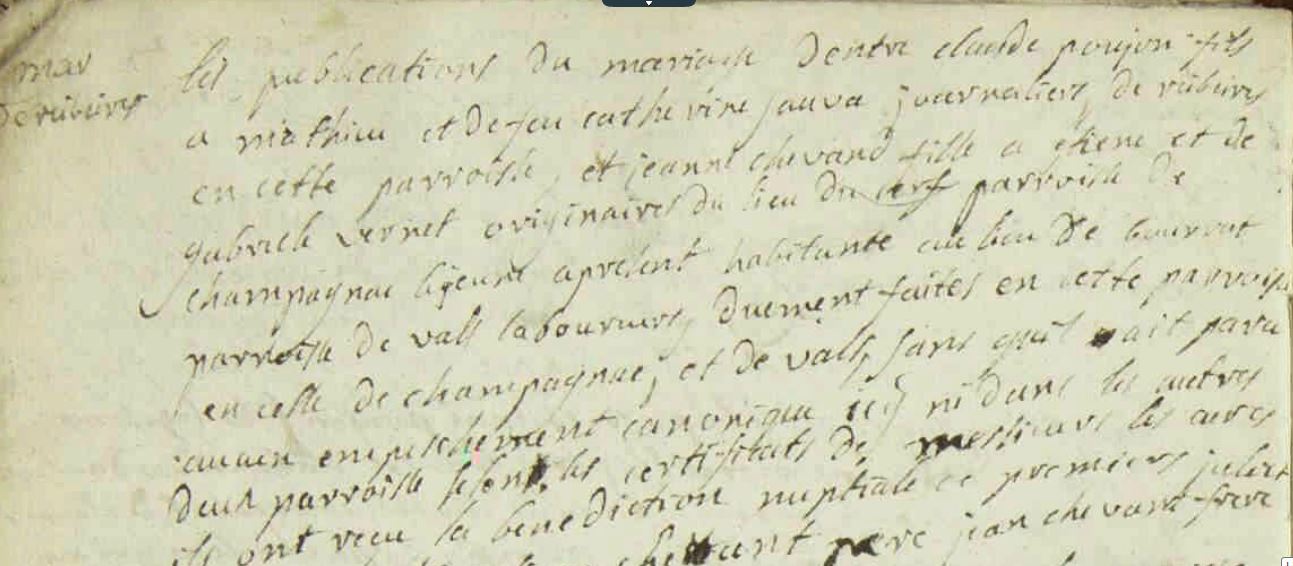 mar
de ribeires
les publications du mariage dentre claude poujon fils
a mathieu et de feu catherine jauva journaliers de ribeires
en cette parroisse, et jeanne chevand fille a etiene et de
gabriele vernet originaires du lieu du cerf parroisse de
champagnac a present habitante au lieu de
parroisse de vals laboureurs, duement faites en cette parroisse
en celle de champagnac, et de vals, sans qu'il ait paru
aucun empeschement canonique icy ni dans les autres
deux parroisse selon les certificats de messieurs les cures
ils ont receu la benediction nuptiale ce premiers juliet
pere jean chevant frere